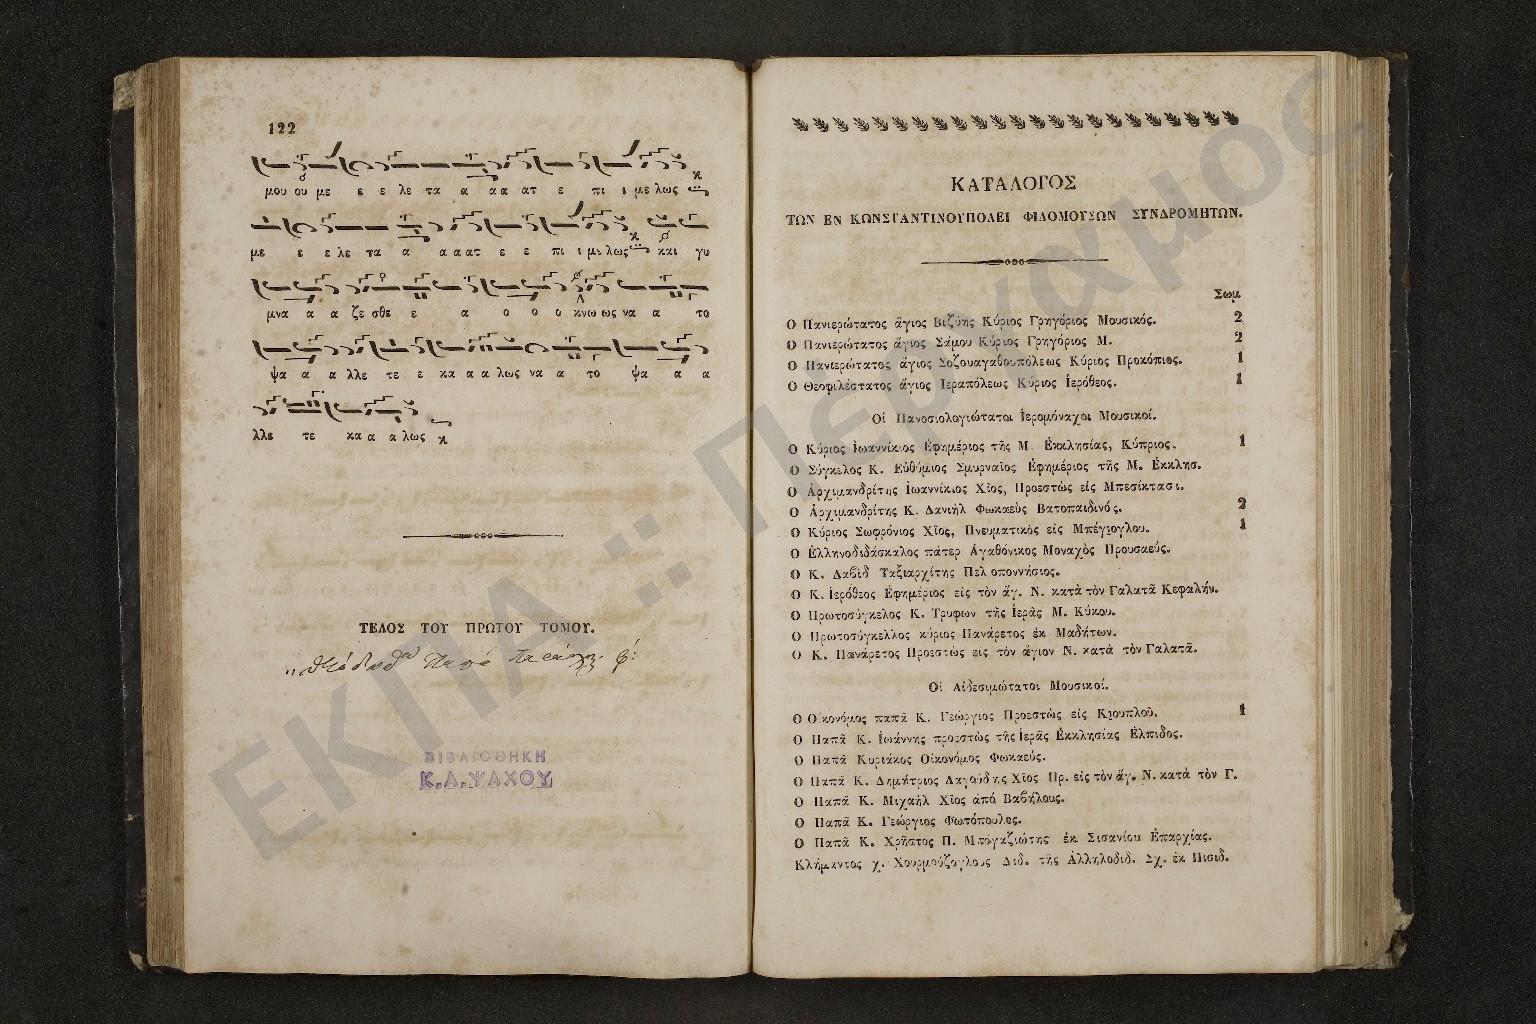 122
μου ου με ε ε λε τα α αα ατ ε πι ι με λως
με ε ε λε τα α α ατ ε ε πι ι με λως και γυ
μνα α α ζε σθε ε α ο ο ο κνω ως να α το
ψα α α λλε τε ε κα α α λως να α το ψα α α
λλε τε κα α α λως
ΤΕΛΟΣ ΤΟΥ ΠΡΩΤΟΥ ΤΟΜΟΥ.
ΒΙΒΛΙΟΘΗΚΗ
Κ.Α.ΨΑΧΟΥ
ΚΑΤΑΛΟΓΟΣ
ΤΩΝ ΕΝ ΚΩΝΣΤΑΝΤΙΝΟΥΠΟΛΕΙ ΦΙΛΟΜΟΥΣΩΝ ΣΥΝΔΡΟΜΗΤΩΝ.
Σωμ
Ο Πανιερώτατος ἅγιος Βιζύης Κύριος Γρηγόριος Μουσικός. 2
Ο Πανιερώτατος ἅγιος Σάμου Κύριος Γρηγόριος Μ. 2
Ο Πανιερώτατος ἅγιος Σοζουαγαθουπόλεως Κύριος Προκόπιος. 1
Ο Θεοφιλέστατος ἅγιος Ιεραπόλεως Κύριος Ιερόθεος. 1
Οἱ Πανοσιολογιώτατοι Ιερομόναχοι Μουσικοί.
Ο Κύριος Ιωαννίκιος Εφημέριος τῆς Μ. Εκκλησίας, Κύπριος. 1
Ο Σύγκελος Κ. Εὐθύμιος Σμυρναῖος Εφημέριος τῆς Μ. Εκκλησ.
Ο Αρχιμανδρίτης Ιωαννίκιος Χῖος, Προεστὼς εἰς Μπεσίκτασι.
Ο Αρχιμανδρίτης Κ. Δανιὴλ Φωκαεὺς Βατοπαιδινός. 2
Ο Κύριος Σωφρόνιος Χῖος, Πνευματικὸς εἰς Μπέγιογλου. 1
Ο Ελληνοδιδάσκαλος πάτερ Αγαθόνικος Μοναχὸς Προυσαεύς.
Ο Κ. Δαβὶδ Ταξιαρχίτης Πελοποννήσιος.
Ο Κ. Ιερόθεος Εφημέριος εἰς τὸν ἅγ. Ν. κατὰ τὸν Γαλατᾶ Κεφαλήν.
Ο Πρωτοσύγκελος Κ. Τρυφων τῆς Ιερᾶς Μ. Κύκου.
Ο Πρωτοσύγκελλος κύριος Πανάρετος ἐκ Μαδήτων.
Ο Κ. Πανάρετος Προεστὼς εἰς τὸν ἅγιον Ν. κατὰ τὸν Γαλατᾶ.
Οἱ Αἰδεσιμώτατοι Μουσικοί.
Ο Οἰκονόμος παπᾶ Κ. Γεώργιος Προεστὼς εἰς Κιουπλοῦ. 1
Ο Παπᾶ Κ. Ιωάννης προεστὼς τῆς Ιερᾶς Εκκλησίας Ελπιδος.
Ο Παπᾶ Κυριάκος Οἰκονόμος Φωκαεύς.
Ο Παπᾶ Κ. Δημήτριος Λαγούδης Χῖος Πρ. εἰς τὸν ἅγ. Ν. κατὰ τὸν Γ.
Ο Παπᾶ Κ. Μιχαὴλ Χῖος ἀπό Βαβήλους.
Ο Παπᾶ Κ. Γεώργιος Φωτόπουλος.
Ο Παπᾶ Κ. Χρῆστος Π. Μπογαζιώτης ἐκ Σισανίου Επαρχίας.
Κλήμαντος χ. Χουρμούζογλους Διδ. τῆς Αλληλοδιδ. Σχ. ἐκ Πισιδ.
ΕΚΠΑ :: Πέργαμος